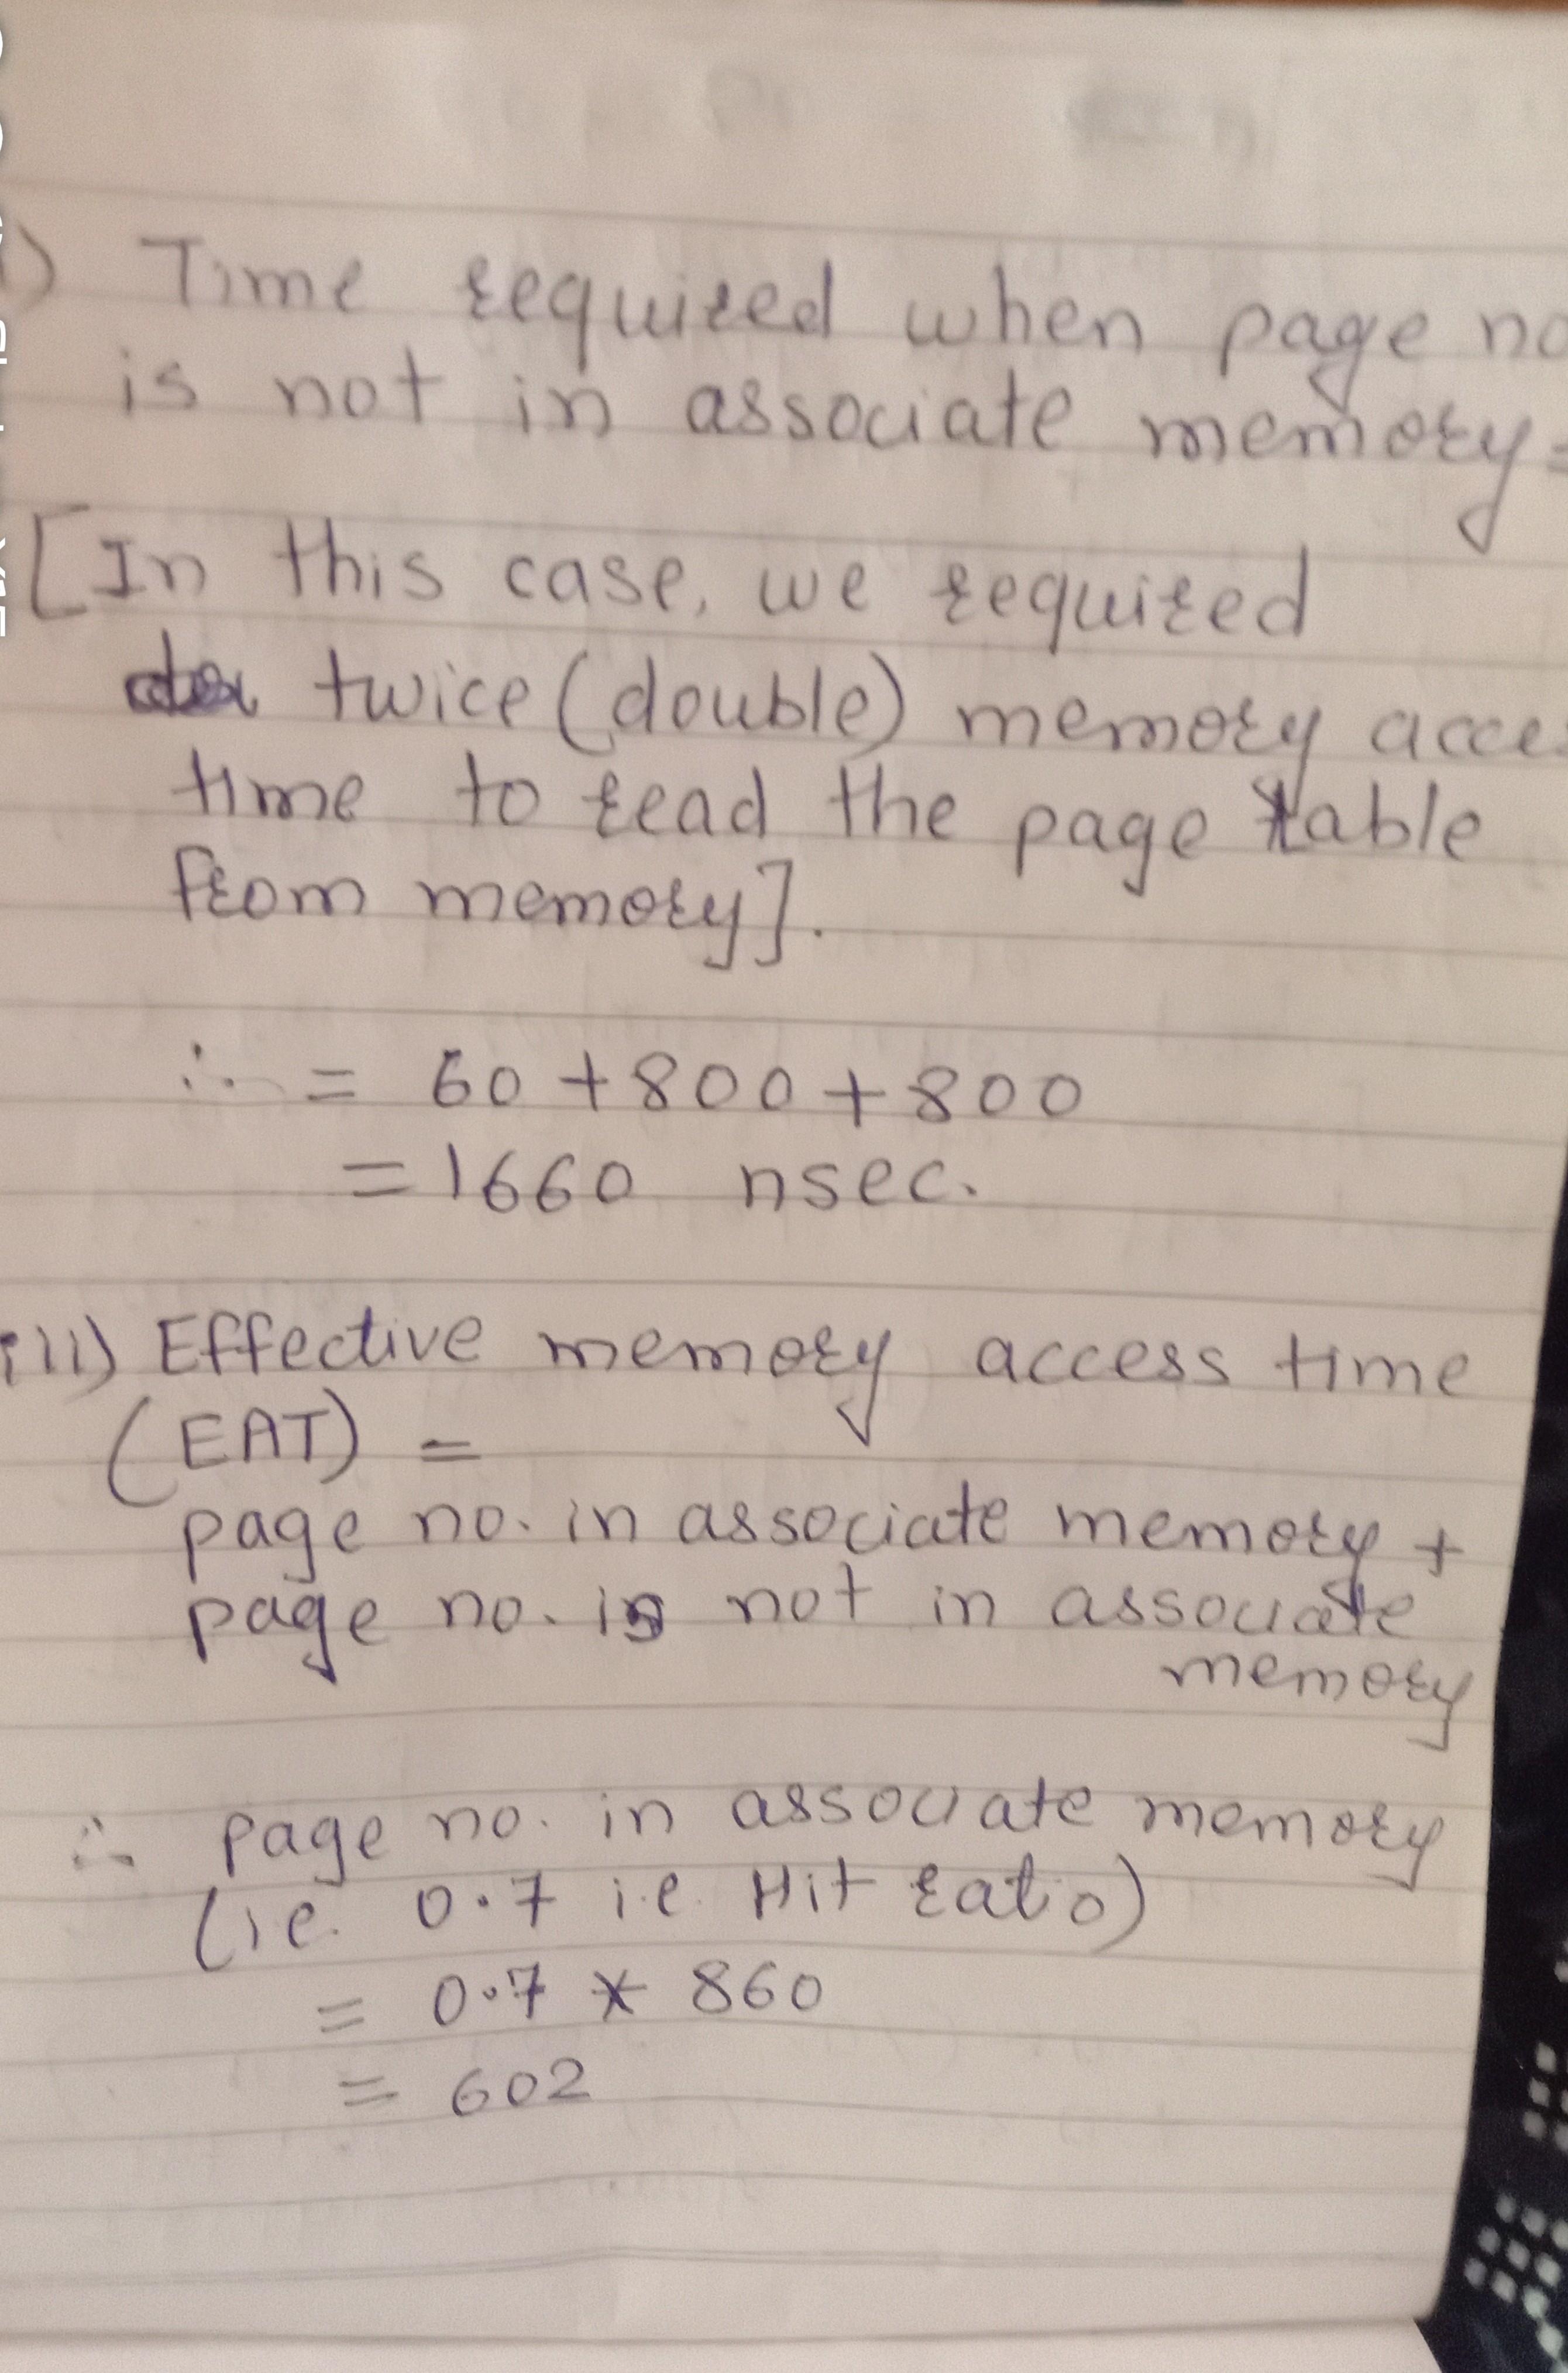 ) Time required when page no
is not in associate memory =
[In this case, we required
twice (double) memory acce
time to read the page table
from memory].
∴ = 60 + 800 + 800
= 1660 nsec.
iii) Effective memory access time
(EAT) =
page no. in associate memory +
page no. is not in associate
memory
∴ page no. in associate memory
(ie. 0.7 i.e. Hit ratio)
= 0.7 * 860
= 602